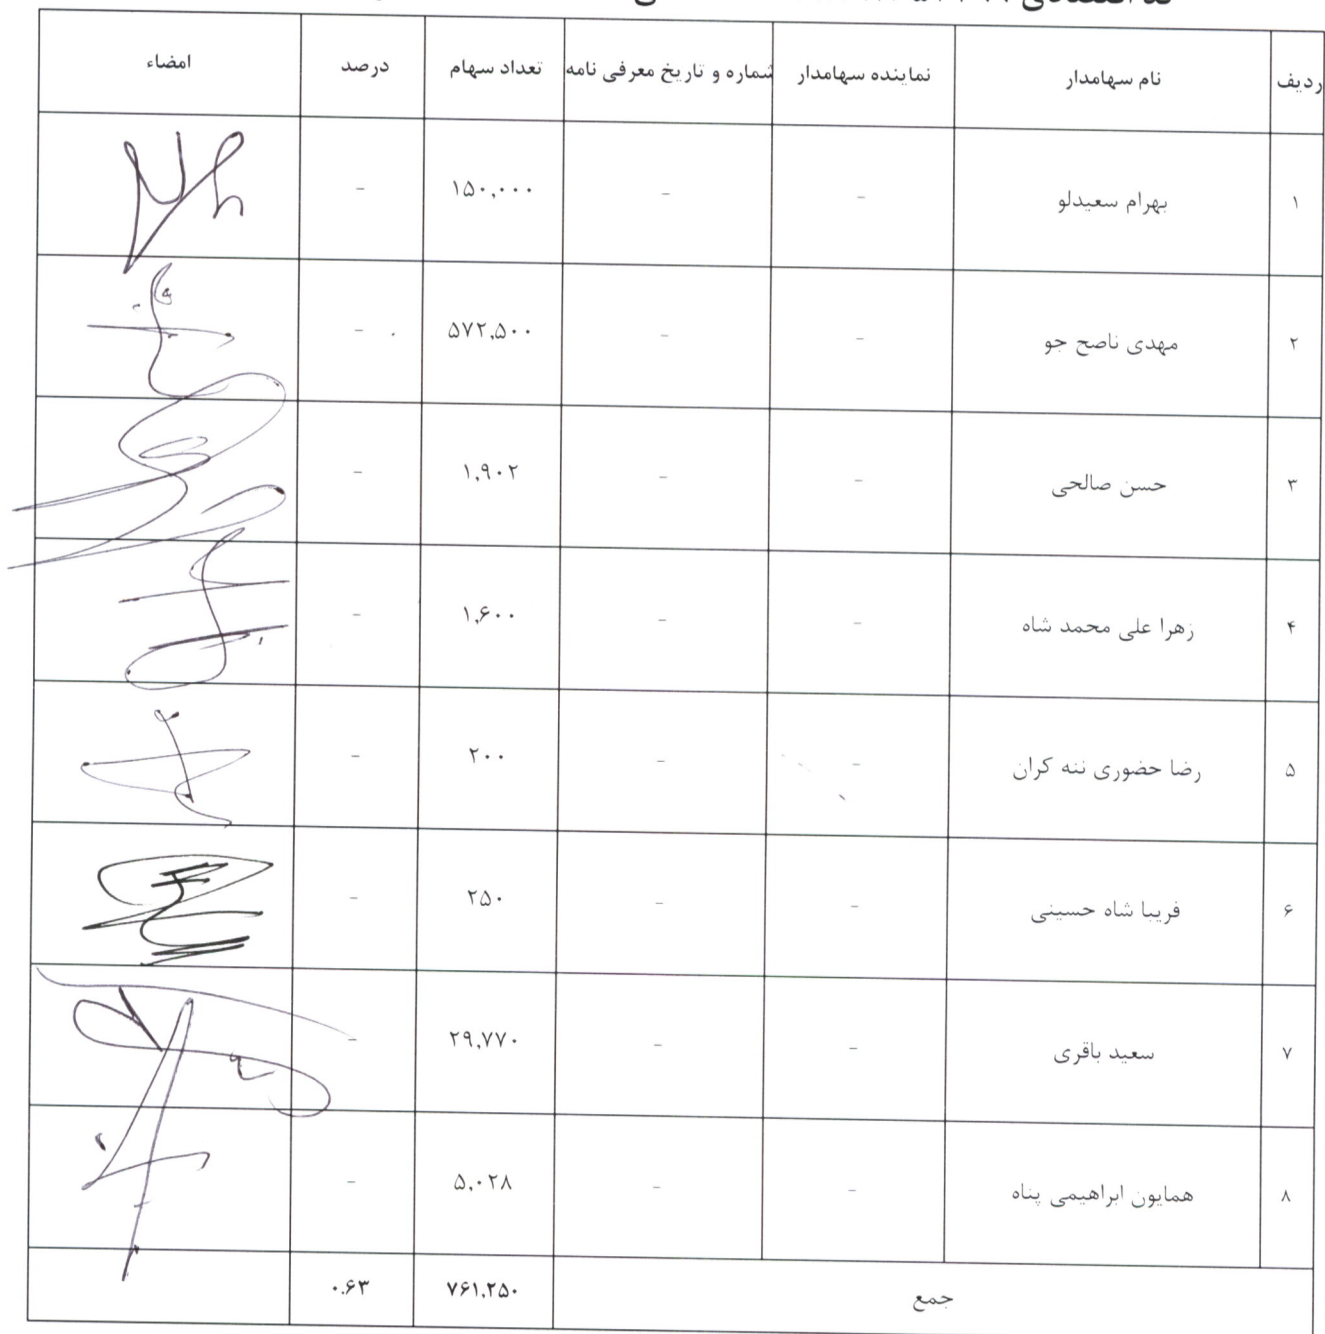 ردیف نام سهامدار نماینده سهامدار شماره و تاریخ معرفی نامه تعداد سهام درصد امضاء
۱ بهرام سعیدلو - - ۱۵۰,۰۰۰ -
۲ مهدی ناصح جو - - ۵۷۲,۵۰۰ -
۳ حسن صالحی - - ۱,۹۰۲ -
۴ زهرا علی محمد شاه - - ۱,۶۰۰ -
۵ رضا حضوری ننه کران - - ۲۰۰ -
۶ فریبا شاه حسینی - - ۲۵۰ -
۷ سعید باقری - - ۲۹,۷۷۰ -
۸ همایون ابراهیمی پناه - - ۵,۰۲۸ -
جمع ۷۶۱,۲۵۰ ۰.۶۳